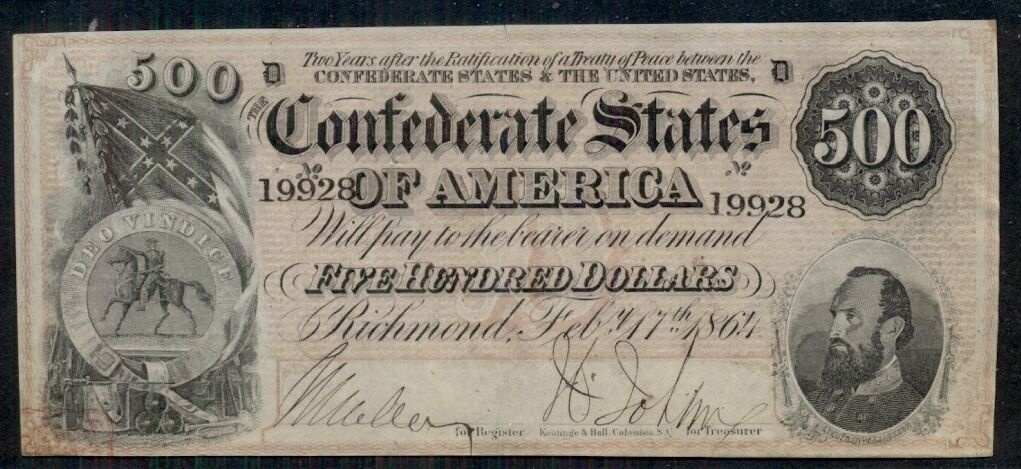 500
D
Two Years after the Ratification of a Treaty of Peace between the
D
CONFEDERATE STATES & THE UNITED STATES,
THE
Confederate States
500
OF AMERICA
19928
19928
DEO VINDICE
Will pay to the bearer on demand
FIVE HUNDRED DOLLARS
Richmond, Feby. 17th 1864
for Register
Keatinge & Ball, Columbia S.C.
for Treasurer